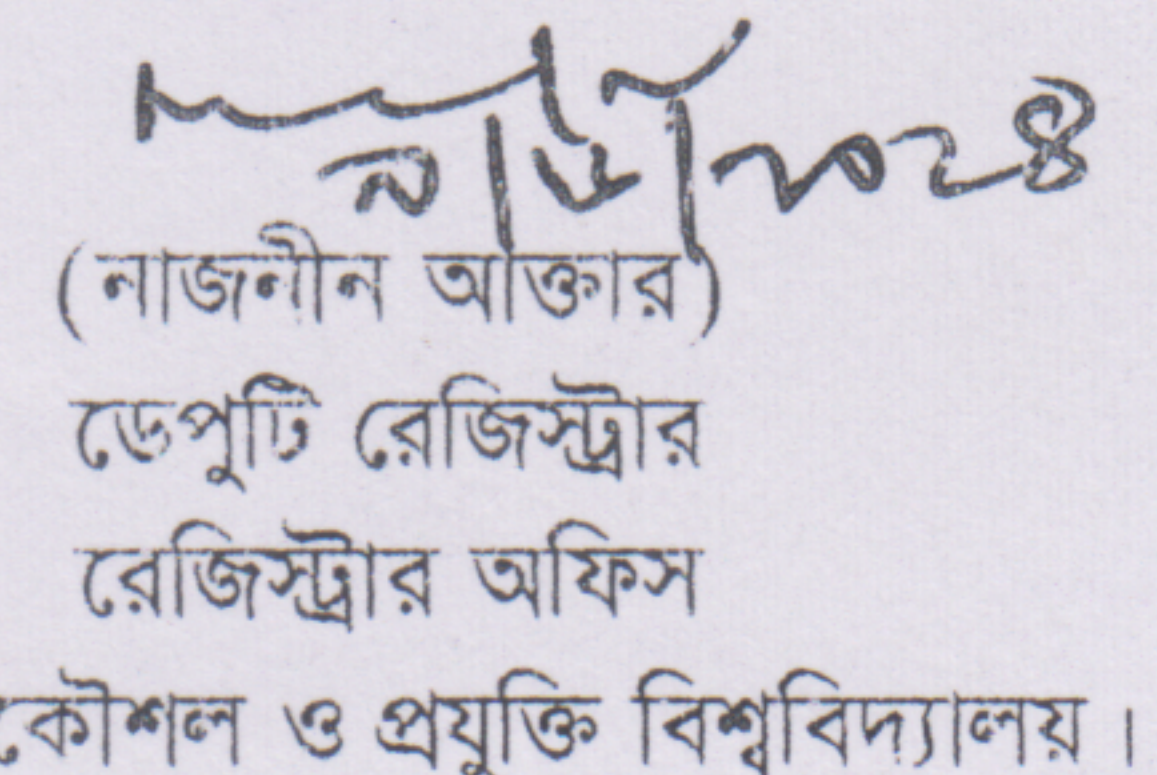 (নাজনীন আক্তার)
ডেপুটি রেজিস্ট্রার
রেজিস্ট্রার অফিস
কৌশল ও প্রযুক্তি বিশ্ববিদ্যালয়।